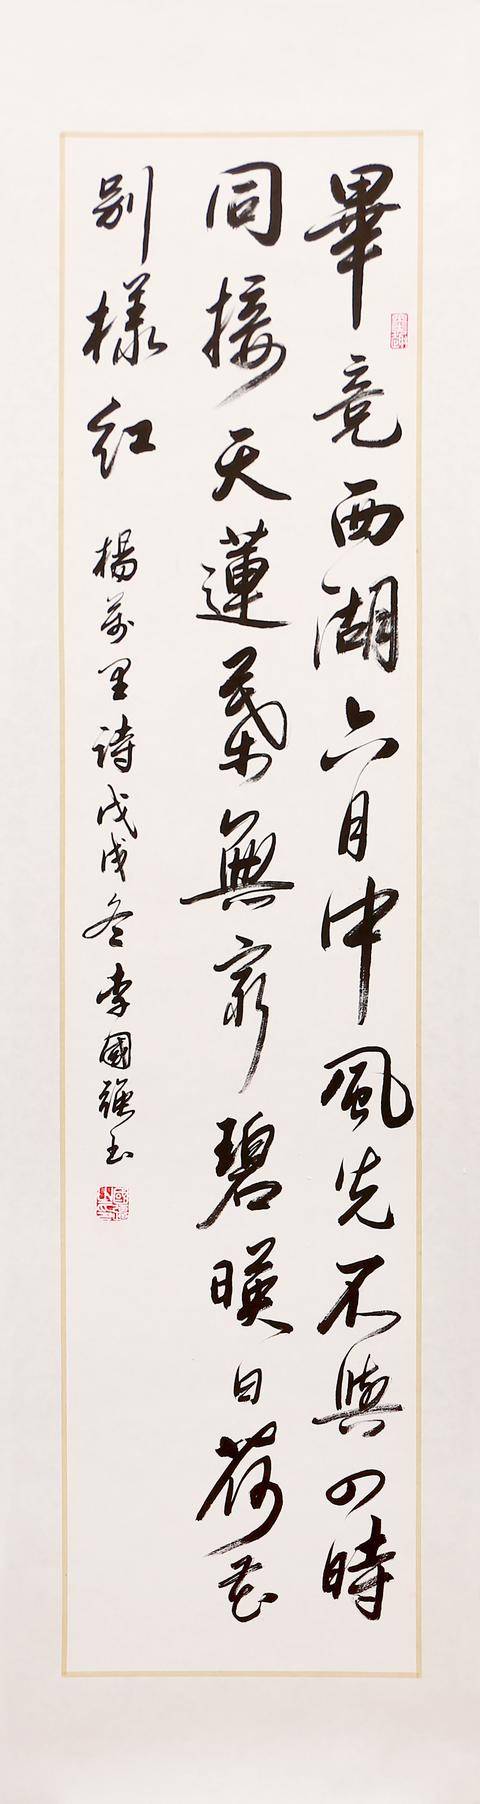 畢竟西湖六月中風光不與四時
同接天蓮葉無窮碧暎日荷花
別樣紅 楊萬里詩戊戌冬李國強書